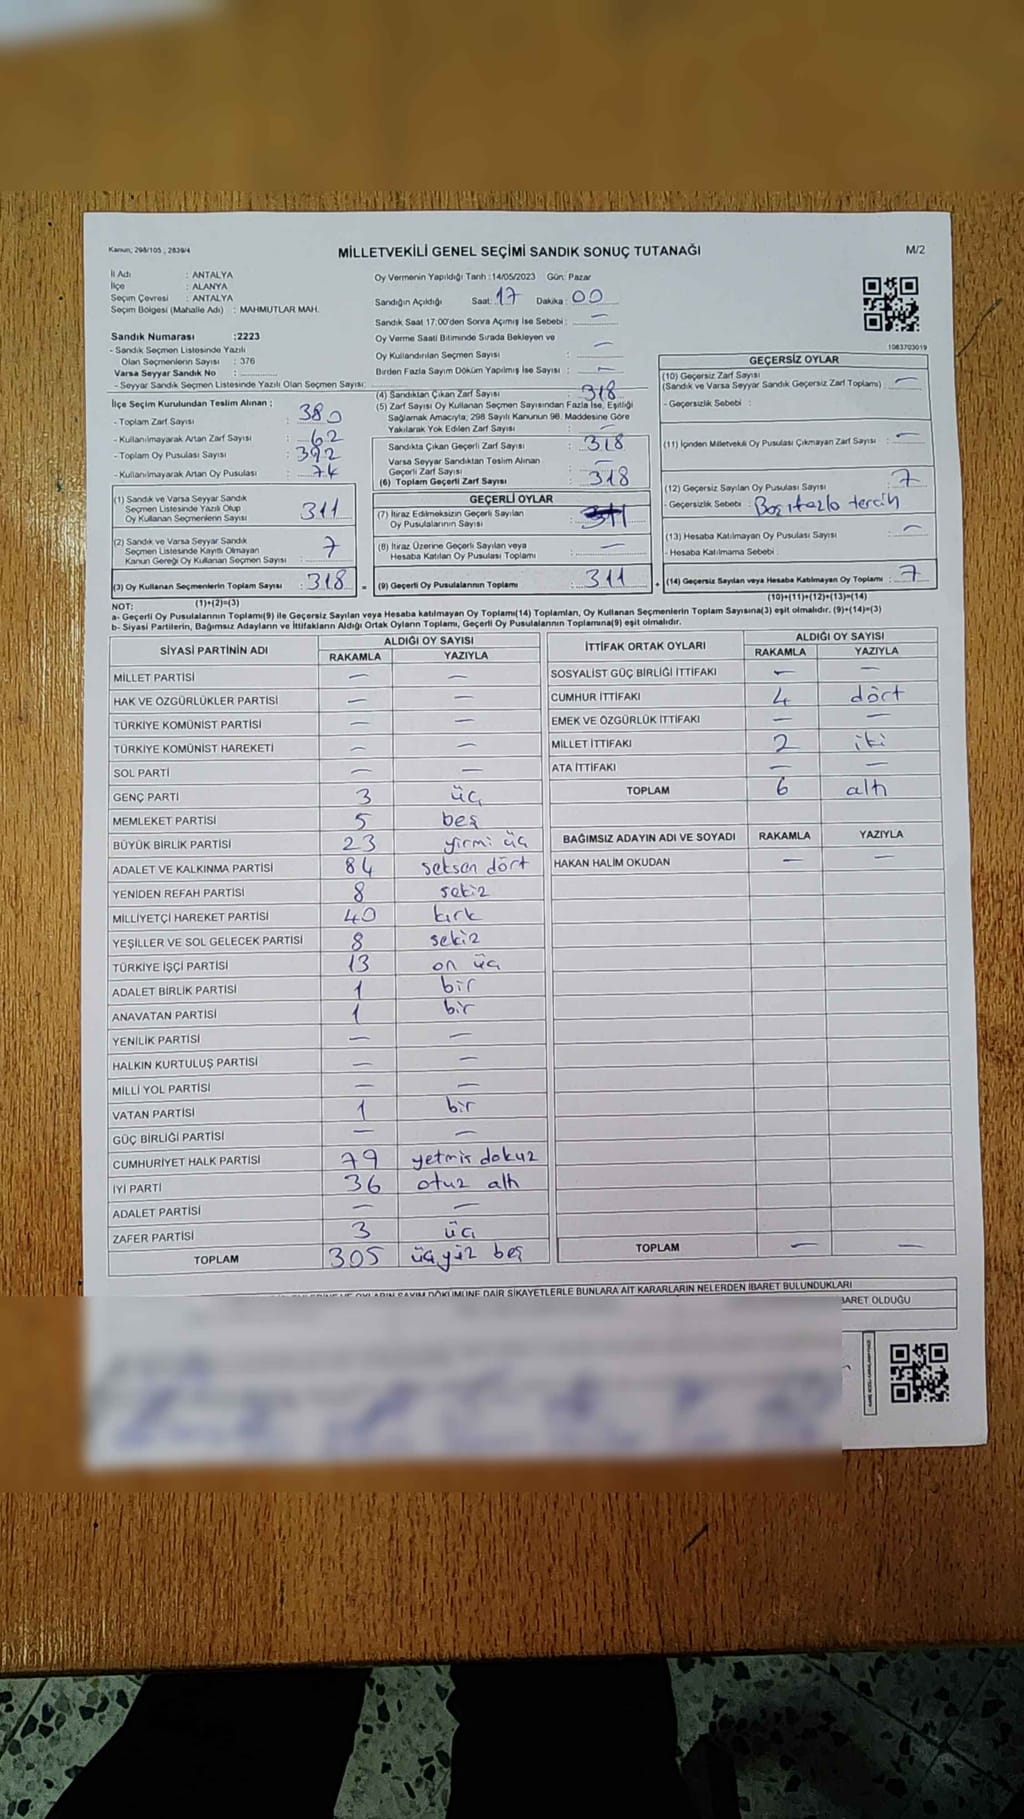 Kanun; 298/105 , 2839/4
MİLLETVEKİLİ GENEL SEÇİMİ SANDIK SONUÇ TUTANAĞI
M/2
İl Adı : ANTALYA
İlçe : ALANYA
Seçim Çevresi : ANTALYA
Seçim Bölgesi (Mahalle Adı) : MAHMUTLAR MAH.
Sandık Numarası :2223
- Sandık Seçmen Listesinde Yazılı
Olan Seçmenlerin Sayısı : 376
Varsa Seyyar Sandık No :
- Seyyar Sandık Seçmen Listesinde Yazılı Olan Seçmen Sayısı:
Oy Vermenin Yapıldığı Tarih :14/05/2023 Gün: Pazar
Sandığın Açıldığı Saat: 17 Dakika : 00
Sandık Saat 17.00'den Sonra Açımış İse Sebebi : —
Oy Verme Saati Bitiminde Sırada Bekleyen ve
Oy Kullandırılan Seçmen Sayısı : —
Birden Fazla Sayım Döküm Yapılmış İse Sayısı : —
1083703019
İlçe Seçim Kurulundan Teslim Alınan ;
- Toplam Zarf Sayısı : 380
- Kullanılmayarak Artan Zarf Sayısı : 62
- Toplam Oy Pusulası Sayısı : 392
- Kullanılmayarak Artan Oy Pusulası : 74
(1) Sandık ve Varsa Seyyar Sandık
Seçmen Listesinde Yazılı Olup
Oy Kullanan Seçmenlerin Sayısı : 311
(2) Sandık ve Varsa Seyyar Sandık
Seçmen Listesinde Kayıtlı Olmayan
Kanun Gereği Oy Kullanan Seçmen Sayısı : 7
(3) Oy Kullanan Seçmenlerin Toplam Sayısı : 318 =
(1)+(2)=(3)
(4) Sandıktan Çıkan Zarf Sayısı : 318
(5) Zarf Sayısı Oy Kullanan Seçmen Sayısından Fazla İse, Eşitliği
Sağlamak Amacıyla, 298 Sayılı Kanunun 98. Maddesine Göre
Yakılarak Yok Edilen Zarf Sayısı : —
Sandıkta Çıkan Geçerli Zarf Sayısı : 318
Varsa Seyyar Sandıktan Teslim Alınan
Geçerli Zarf Sayısı : —
(6) Toplam Geçerli Zarf Sayısı : 318
GEÇERLİ OYLAR
(7) İtiraz Edilmeksizin Geçerli Sayılan
Oy Pusulalarının Sayısı : 311
(8) İtiraz Üzerine Geçerli Sayılan veya
Hesaba Katılan Oy Pusulası Toplamı : —
(9) Geçerli Oy Pusulalarının Toplamı : 311 +
GEÇERSİZ OYLAR
(10) Geçersiz Zarf Sayısı
(Sandık ve Varsa Seyyar Sandık Geçersiz Zarf Toplamı) : —
- Geçersizlik Sebebi :
(11) İçinden Milletvekili Oy Pusulası Çıkmayan Zarf Sayısı : —
(12) Geçersiz Sayılan Oy Pusulası Sayısı : 7
- Geçersizlik Sebebi : Boş, fazla tercih
(13) Hesaba Katılmayan Oy Pusulası Sayısı : —
- Hesaba Katılmama Sebebi :
(14) Geçersiz Sayılan veya Hesaba Katılmayan Oy Toplamı : 7
(10)+(11)+(12)+(13)=(14)
NOT:
a- Geçerli Oy Pusulalarının Toplamı(9) ile Geçersiz Sayılan veya Hesaba katılmayan Oy Toplamı(14) Toplamları, Oy Kullanan Seçmenlerin Toplam Sayısına(3) eşit olmalıdır. (9)+(14)=(3)
b- Siyasi Partilerin, Bağımsız Adayların ve İttifakların Aldığı Ortak Oyların Toplamı, Geçerli Oy Pusulalarının Toplamına(9) eşit olmalıdır.
SİYASİ PARTİNİN ADI ALDIĞI OY SAYISI
RAKAMLA YAZIYLA
MİLLET PARTİSİ — —
HAK VE ÖZGÜRLÜKLER PARTİSİ — —
TÜRKİYE KOMÜNİST PARTİSİ — —
TÜRKİYE KOMÜNİST HAREKETİ — —
SOL PARTİ — —
GENÇ PARTİ 3 üç
MEMLEKET PARTİSİ 5 beş
BÜYÜK BİRLİK PARTİSİ 23 yirmi üç
ADALET VE KALKINMA PARTİSİ 84 seksen dört
YENİDEN REFAH PARTİSİ 8 sekiz
MİLLİYETÇİ HAREKET PARTİSİ 40 kırk
YEŞİLLER VE SOL GELECEK PARTİSİ 8 sekiz
TÜRKİYE İŞÇİ PARTİSİ 13 on üç
ADALET BİRLİK PARTİSİ 1 bir
ANAVATAN PARTİSİ 1 bir
YENİLİK PARTİSİ — —
HALKIN KURTULUŞ PARTİSİ — —
MİLLİ YOL PARTİSİ — —
VATAN PARTİSİ 1 bir
GÜÇ BİRLİĞİ PARTİSİ — —
CUMHURİYET HALK PARTİSİ 79 yetmiş dokuz
İYİ PARTİ 36 otuz altı
ADALET PARTİSİ — —
ZAFER PARTİSİ 3 üç
TOPLAM 305 üçyüz beş
İTTİFAK ORTAK OYLARI ALDIĞI OY SAYISI
RAKAMLA YAZIYLA
SOSYALİST GÜÇ BİRLİĞİ İTTİFAKI — —
CUMHUR İTTİFAKI 4 dört
EMEK VE ÖZGÜRLÜK İTTİFAKI — —
MİLLET İTTİFAKI 2 iki
ATA İTTİFAKI — —
TOPLAM 6 altı
BAĞIMSIZ ADAYIN ADI VE SOYADI RAKAMLA YAZIYLA
HAKAN HALİM OKUDAN — —
TOPLAM — —
OYLARIN SAYIM DÖKÜMÜNE DAİR ŞİKAYETLERLE BUNLARA AİT KARARLARIN NELERDEN İBARET BULUNDUKLARI
İBARET OLDUĞU